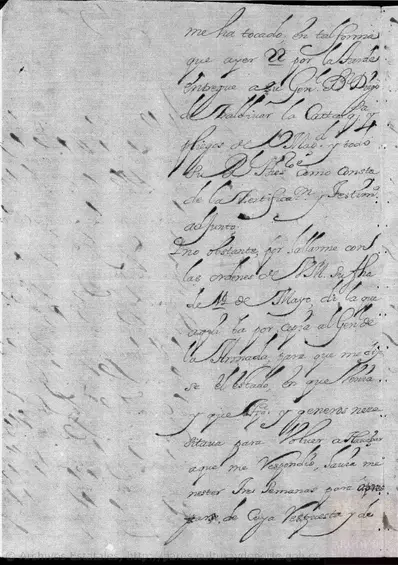 me ha tocado, en tal forma
que ayer 22 por la tarde
entregue a su Genl. Dn. Diego
de Zaldivar la Carta
pliegos de V Magd. y todo
como consta
de la Zertificaon. y Testimo.
adjunto
Y no obstante, por hallarme con
las ordenes de VM. su fha
de 14 de Mayo, de la que
aqui ba por copia al Genl. de
la Armada, para que me di
se el estado, en que
y que y generos nece
sitava para Volver a
a que me Respondio, havia me
nester tres semanas para
de cuya Respuesta y de